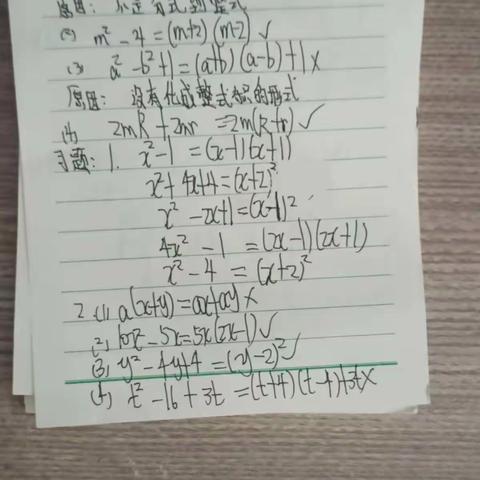 原因：不是分式到整式
(2) m² - 4 = (m+2)(m-2) ✓
(3) a² - b² + 1 = (a+b)(a-b) + 1 ×
原因：没有化成整式积的形式
(4) 2mR + 2mr = 2m(R+r) ✓
习题：1. x² - 1 = (x-1)(x+1)
x² + 4x + 4 = (x+2)²
x² - 2x + 1 = (x-1)²
4x² - 1 = (2x-1)(2x+1)
x² - 4 = (x+2)²
2 (1) a(x+y) = ax+ay ×
(2) 10x² - 5x = 5x(2x-1) ✓
(3) y² - 4y + 4 = (y-2)² ✓
(4) t² - 16 + 3t = (t+4)(t-4)+3t ×